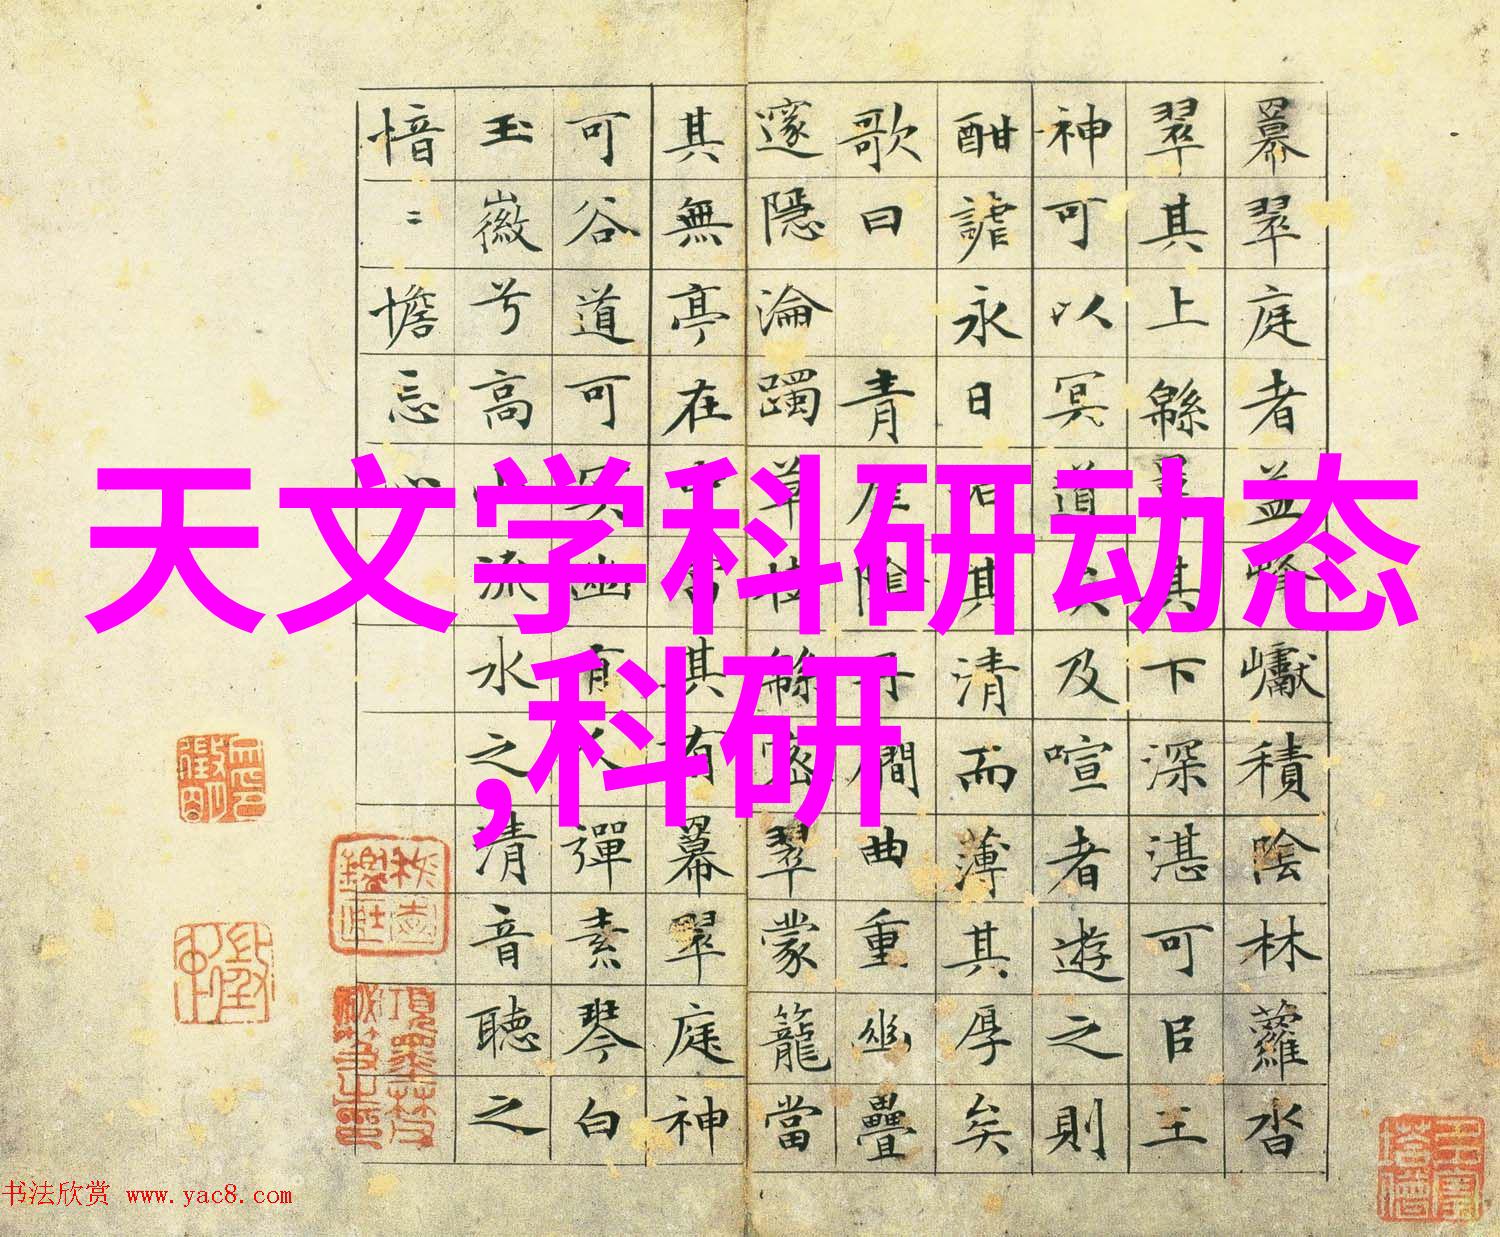 天文学科研动态
,科研
羃翠庭者益峰巘積陰林蘿沓
翠其上緜其下深湛可㠯王
神可以冥道及喧者遊之則
酣謔永日其清而薄其厚矣
歌曰 青崖陰子間曲重幽疊
邃隱淪躅草樹緜密翠蒙籠當
其無亭在其有羃翠庭神
可谷道可幽有人彈素琴白
玉徽兮高流水之清音聽之
愔〻憺忘
书法欣赏 www.yac8.com